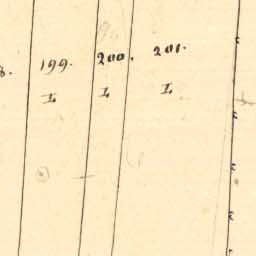 8. 199. 200. 201.
I I I